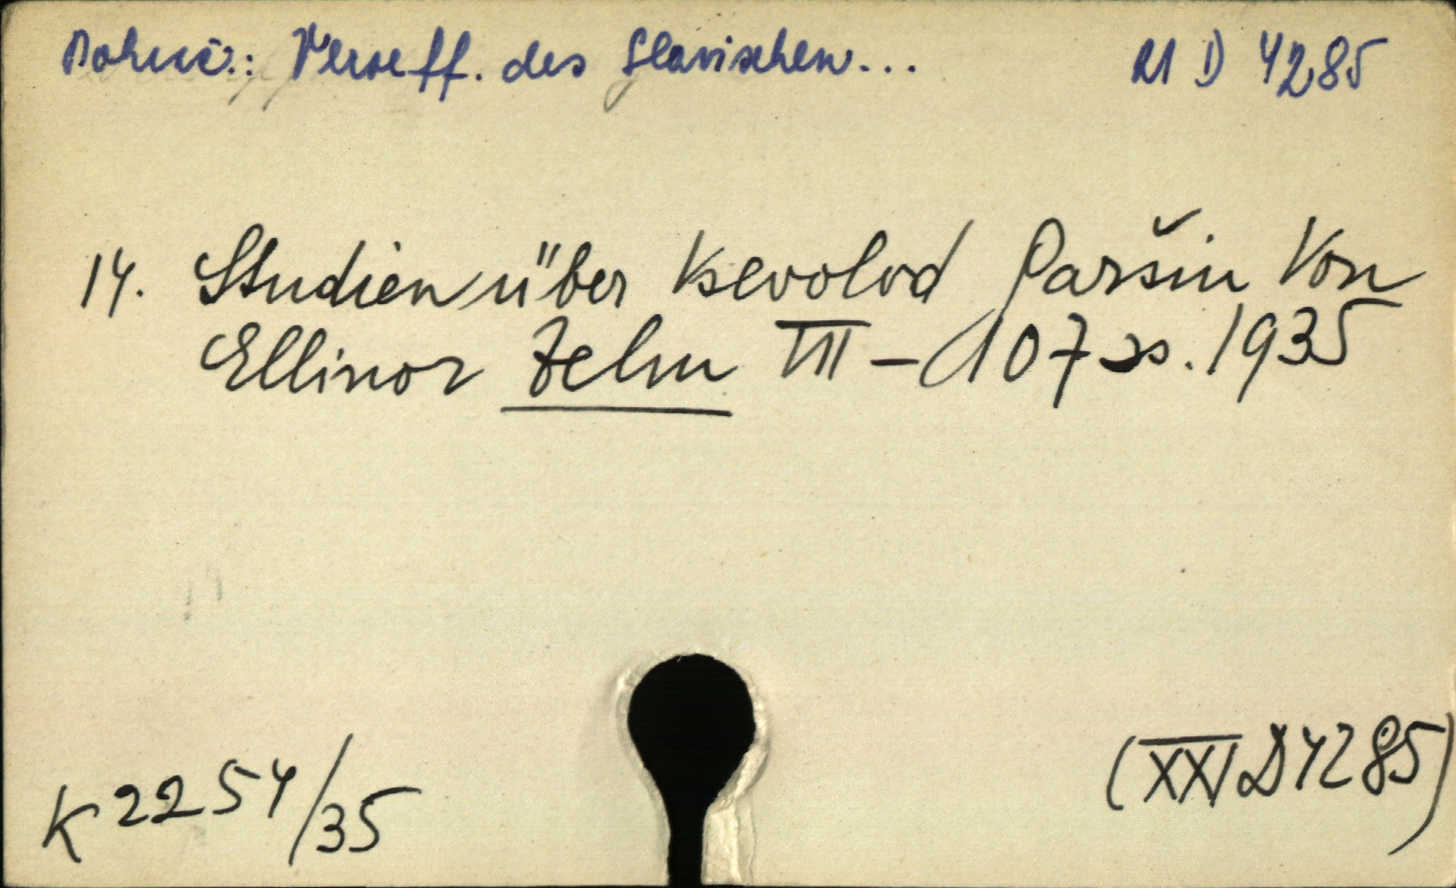 Veroeff. des Slavischen... 21 D 4285
14. Studien über Vsevolod Garšin Von
Ellinor Zelm VII – 107 ss. 1935
K 2254/35
(XXI D 4285)